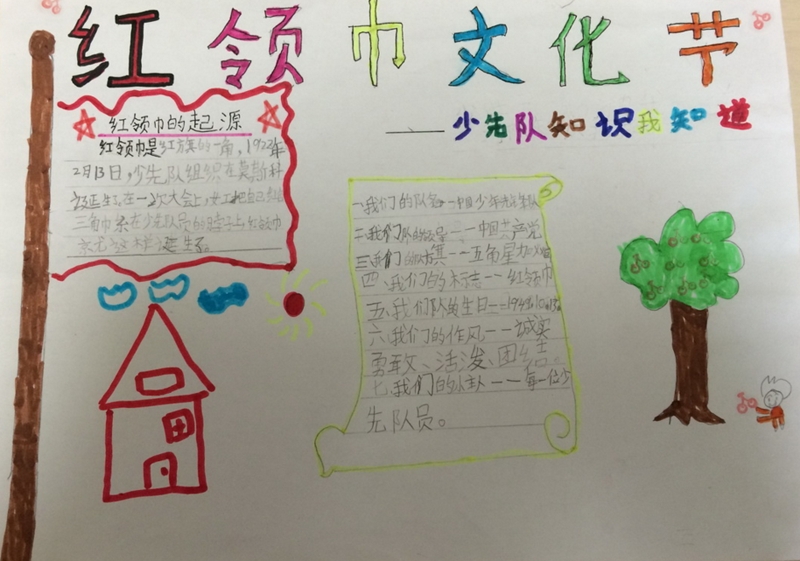 红领巾文化节
——少先队知识我知道
红领巾的起源
红领巾是红旗的一角,1922年
2月13日,少先队组织在莫斯科
诞生了在一次大会上,女工把自己
三角巾系在少先队员的脖子上,红领巾
这样诞生了。
一我们的队名——中国少年先锋队
二、我们队的——中国共产党
三、我们的队旗——五角星加火炬
四、我们的标志——红领巾
五、我们队的生日——1949.10.13。
六、我们的作风——诚实
勇敢、活泼、团结。
七、我们的——每一位少
先队员。